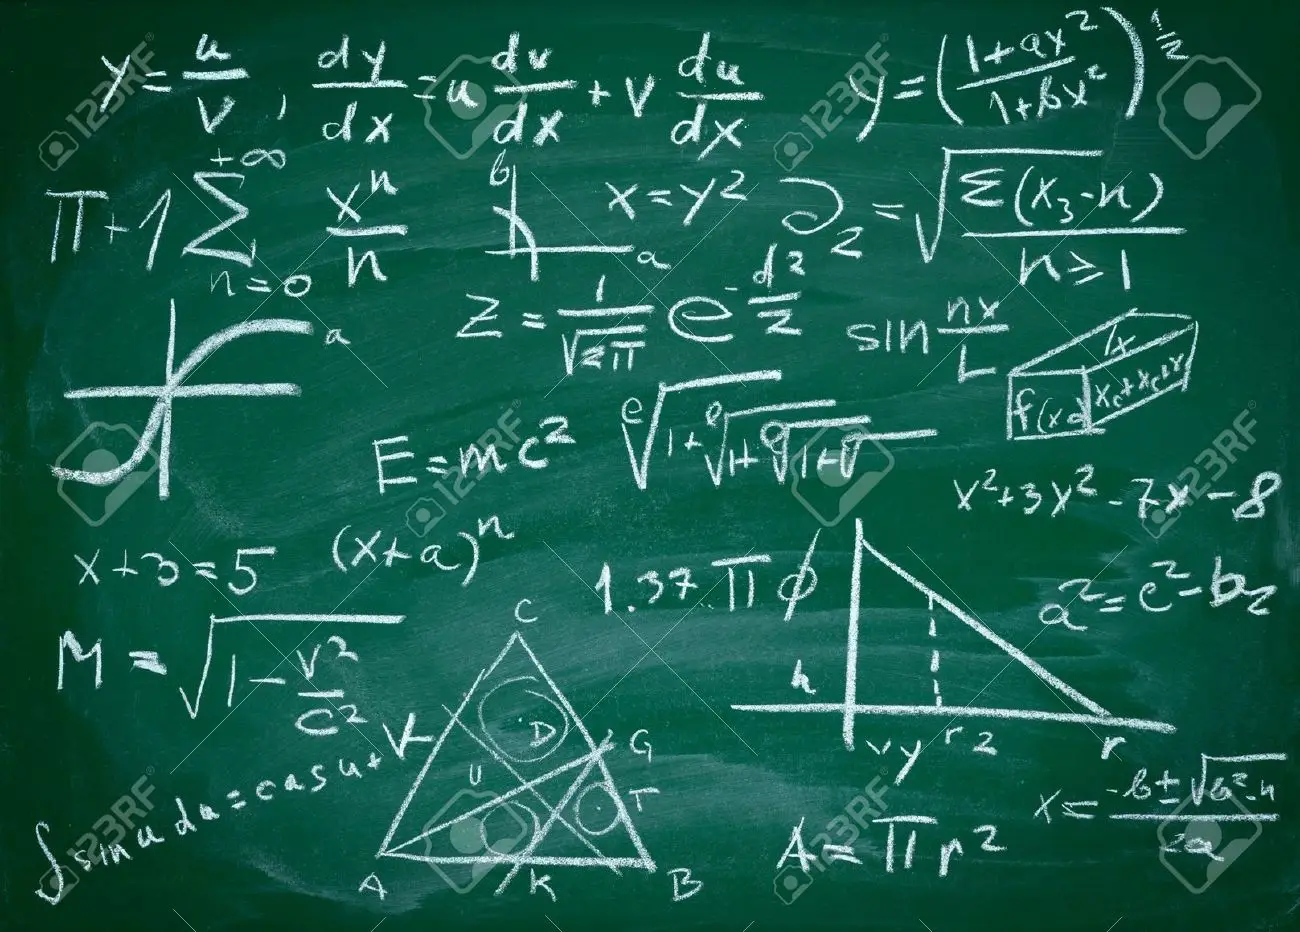 y = u/v , dy/dx = u dv/dx + v du/dx
y = ((1+ax²)/(1+bx²))^1/2
π+1 +∞ Σ n=0 xⁿ/n
b
a
x=y²
∂₂ = √Σ(x₃-n) / n≥1
z = 1/√2π e^-d²/z
sin nx/L
1x
f(x
a
E=mc²
e√1+e√1+e√1+√
x²+3y²-7x-8
x+3=5
(x+a)ⁿ
1.37.πφ
a²=c²-b₂
M = √1-v²/c²
C
D
K
G
U
T
A
K
B
h
vy
r2
r
∫sin u du = cas u +
x = -b±√b²-4/2a
A=πr²
123RF
123RF
123RF
123RF
123RF
123RF
123RF
123RF
123RF
123RF
123RF
123RF